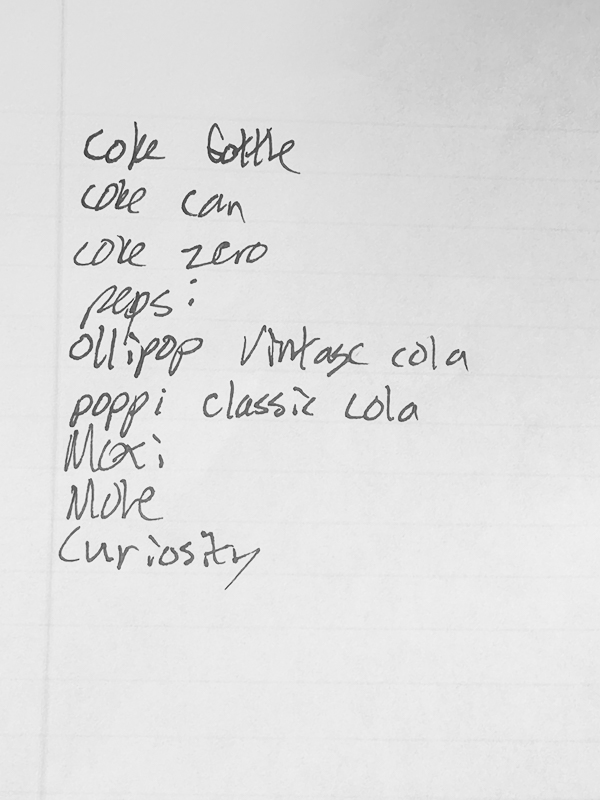 coke bottle
coke can
coke zero
pepsi
ollipop vintage cola
poppi classic cola
Moxi
Moke
Curiosity